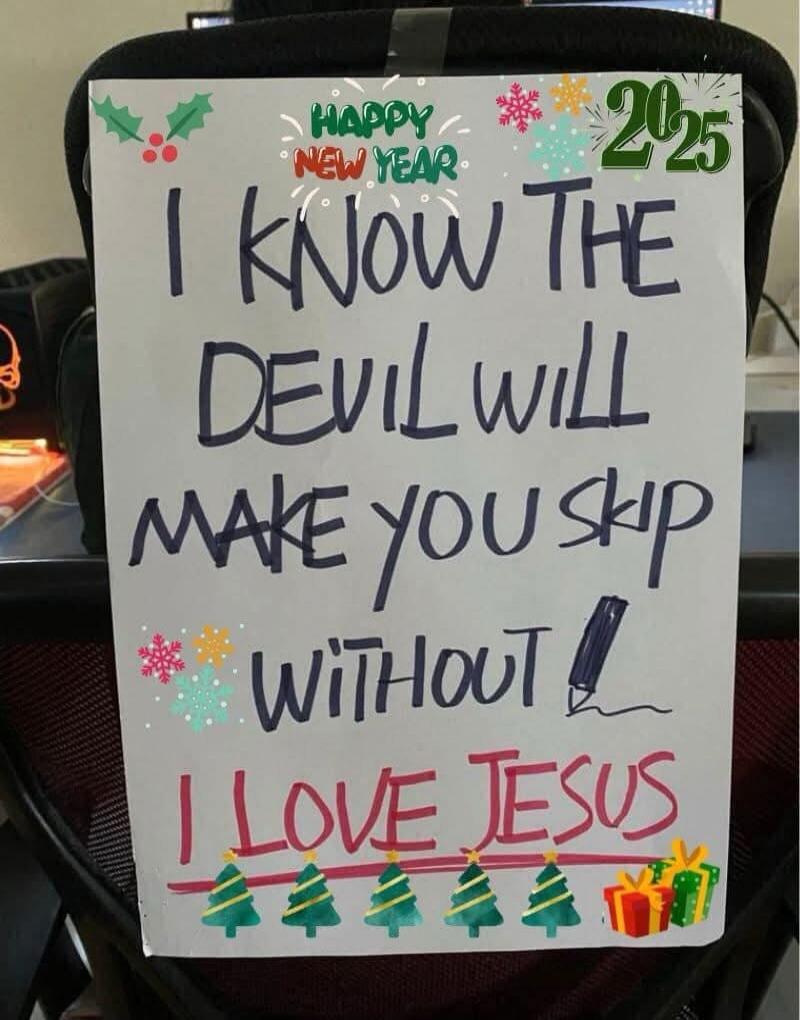 HAPPY
NEW YEAR
2025
I KNOW THE
DEVIL WILL
MAKE YOU SKIP
WITHOUT
I LOVE JESUS